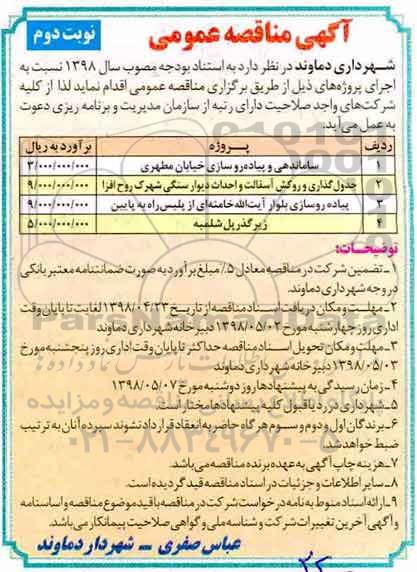 آگهی مناقصه عمومی
نوبت دوم
شهرداری دماوند در نظر دارد به استناد بودجه مصوب سال ۱۳۹۸ نسبت به
اجرای پروژه‌های ذیل از طریق برگزاری مناقصه عمومی اقدام نماید لذا از کلیه
شرکت‌های واجد صلاحیت دارای رتبه از سازمان مدیریت و برنامه ریزی دعوت
به عمل می‌آید.
ردیف پروژه برآورد به ریال
۱ ساماندهی و پیاده‌رو سازی خیابان مطهری ۳/۰۰۰/۰۰۰/۰۰۰
۲ جدول گذاری و روکش آسفالت و احداث دیوار سنگی شهرک روح افزا ۹/۰۰۰/۰۰۰/۰۰۰
۳ پیاده روسازی بلوار آیت‌الله خامنه‌ای از پلیس راه به پایین ۹/۰۰۰/۰۰۰/۰۰۰
۴ زیرگذر پل شلمبه ۵/۰۰۰/۰۰۰/۰۰۰
توضیحات:
۱ـ تضمین شرکت در مناقصه معادل ۵٪ مبلغ برآورد به صورت ضمانتنامه معتبر بانکی
در وجه شهرداری دماوند.
۲ـ مهلت و مکان دریافت اسناد مناقصه از تاریخ ۱۳۹۸/۰۴/۲۳ لغایت تا پایان وقت
اداری روز چهارشنبه مورخ ۱۳۹۸/۰۵/۰۲ دبیرخانه شهرداری دماوند
۳ـ مهلت و مکان تحویل اسناد مناقصه حداکثر تا پایان وقت اداری روز پنجشنبه مورخ
۱۳۹۸/۰۵/۰۳ دبیرخانه شهرداری دماوند
۴ـ زمان رسیدگی به پیشنهادها روز دوشنبه مورخ ۱۳۹۸/۰۵/۰۷
۵ـ شهرداری در رد یا قبول کلیه پیشنهادها مختار است.
۶ـ برندگان اول و دوم و سوم هرگاه حاضر به انعقاد قرارداد نشوند سپرده آنان به ترتیب
ضبط خواهد شد.
۷ـ هزینه چاپ آگهی به عهده برنده مناقصه می‌باشد.
۸ـ سایر اطلاعات و جزئیات در اسناد مناقصه قید گردیده است.
۹ـ ارائه اسناد منوط به نامه درخواست شرکت در مناقصه با قید موضوع مناقصه و اساسنامه
و آگهی آخرین تغییرات شرکت و شناسه ملی و گواهی صلاحیت پیمانکار می‌باشد.
عباس صفری ـ شهردار دماوند